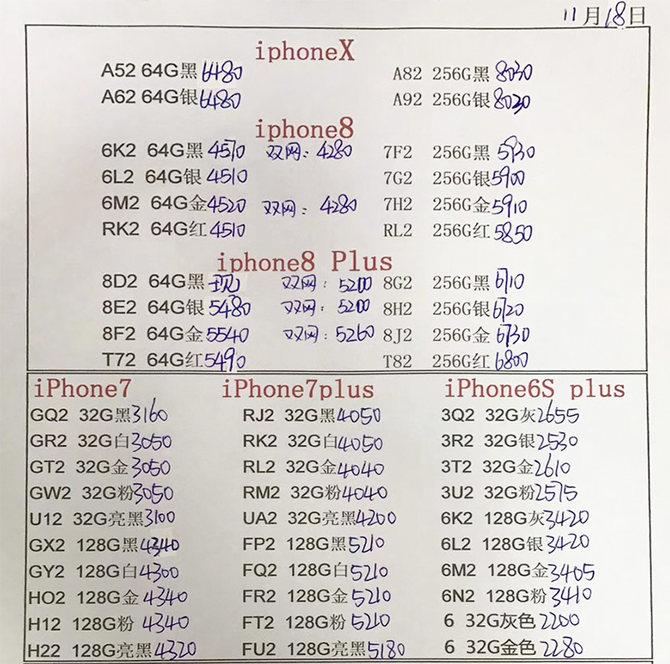 11月18日
iphoneX
A52 64G黑 6480 A82 256G黑 8030
A62 64G银 6480 A92 256G银 8020
iphone8
6K2 64G黑 4510 双网：4280 7F2 256G黑 5930
6L2 64G银 4510 7G2 256G银 5900
6M2 64G金 4520 双网：4280 7H2 256G金 5910
RK2 64G红 4510 RL2 256G红 5850
iphone8 Plus
8D2 64G黑 双网：5200 8G2 256G黑 6710
8E2 64G银 5480 双网：5200 8H2 256G银 6720
8F2 64G金 5540 双网：5260 8J2 256G金 6730
T72 64G红 5490 T82 256G红 6800
iPhone7 iPhone7plus iPhone6S plus
GQ2 32G黑 3160 RJ2 32G黑 4050 3Q2 32G灰 2655
GR2 32G白 3050 RK2 32G白 4050 3R2 32G银 2530
GT2 32G金 3050 RL2 32G金 4040 3T2 32G金 2610
GW2 32G粉 3050 RM2 32G粉 4040 3U2 32G粉 2575
U12 32G亮黑 3100 UA2 32G亮黑 4200 6K2 128G灰 3420
GX2 128G黑 4340 FP2 128G黑 5210 6L2 128G银 3420
GY2 128G白 4300 FQ2 128G白 5210 6M2 128G金 3405
HO2 128G金 4340 FR2 128G金 5210 6N2 128G粉 3410
H12 128G粉 4340 FT2 128G粉 5210 6 32G灰色 2200
H22 128G亮黑 4320 FU2 128G亮黑 5180 6 32G金色 2280